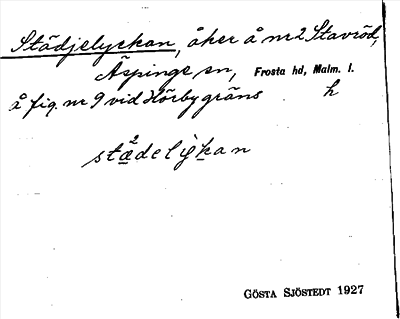 Städjelyckan, åker å nr 2 Stavröd,
Äspinge sn, Frosta hd, Malm. l.
å fig. nr 9 vid Hörby gräns h
städelykan
GÖSTA SJÖSTEDT 1927